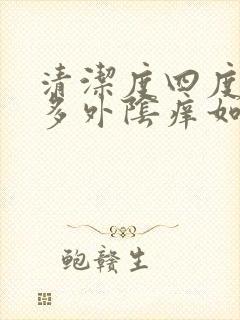 清潔度四度
多外陰痒如
鲍赣生